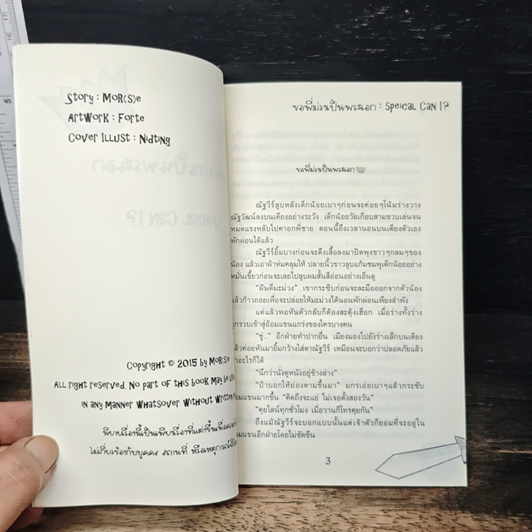 Story : MOR(S)e
Artwork : Forte
Cover Illust : Nidting
Copyright © 2015 by MOR(S)e
All right reserved. No part of this book may be
in any manner whatsover without written
นิยายเรื่องนี้เป็นเพียงเรื่องที่แต่งขึ้นเพื่อความ
ไม่เกี่ยวข้องกับบุคคล สถานที่ หรือเหตุการณ์
ขอพี่ม่วนเป็นพระเอก : Speical Can I?
ขอพี่ม่วนเป็นพระเอก
ณัฐวีร์ลูบหลังเด็กน้อยเบาๆก่อนจะค่อยๆโน้มร่างวาง
ณัฐวัฒน์ลงบนเตียงอย่างระวัง เด็กน้อยวัยเกือบสามขวบเล่นจน
หมดแรงหลับไปคาอกพี่ชาย ตอนนี้ถึงเวลานอนบนเตียงตัวเอง
พักผ่อนได้แล้ว
ณัฐวีร์ยิ้มบางก่อนจะดึงเสื้อลงมาปิดพุงขาวๆกลมๆของ
น้อง แล้วเอาผ้าห่มคลุมให้ ปลายนิ้วขาวลูบแก้มชมพูเด็กน้อยอย่าง
หมั่นเขี้ยวก่อนจะเลยไปลูบผมสั้นสีอ่อนอย่างเอ็นดู
"ฝันดีมะม่วง" เขากระซิบก่อนจะละมือออกจากตัวน้อง
แล้วก้าวถอยเพื่อจะปล่อยให้มะม่วงได้นอนพักผ่อนเพียงลำพัง
แต่แล้วพอหันตัวกลับก็ต้องสะดุ้งเฮือก เมื่อร่างทั้งร่าง
ถูกรวบเข้าสู่อ้อมแขนแกร่งของใครบางคน
"ชู่.." อีกฝ่ายทำปากยื่น เมียงมองไปยังร่างเล็กบนเตียง
แล้วค่อยหันมายิ้มกว้างใส่ตาณัฐวีร์ เหมือนจะบอกว่าปลอดภัยแล้ว
อะไรก็ได้
"นึกว่านั่งดูหนังอยู่ข้างล่าง"
"ป๊าบอกให้ย่องตามขึ้นมา" มกรเอ่ยเบาๆแล้วกระชับ
อ้อมแขนมากขึ้น "คิดถึงจะแย่ ไม่เจอตั้งสองวัน"
"คุยไลน์ทุกชั่วโมง เมื่อวานก็โทรคุยกัน"
ถึงแม้ณัฐวีร์จะบอกแบบนั้นแต่เจ้าตัวก็ยอมที่จะอยู่ใน
อ้อมแขนอีกฝ่ายโดยไม่ขัดขืน
3